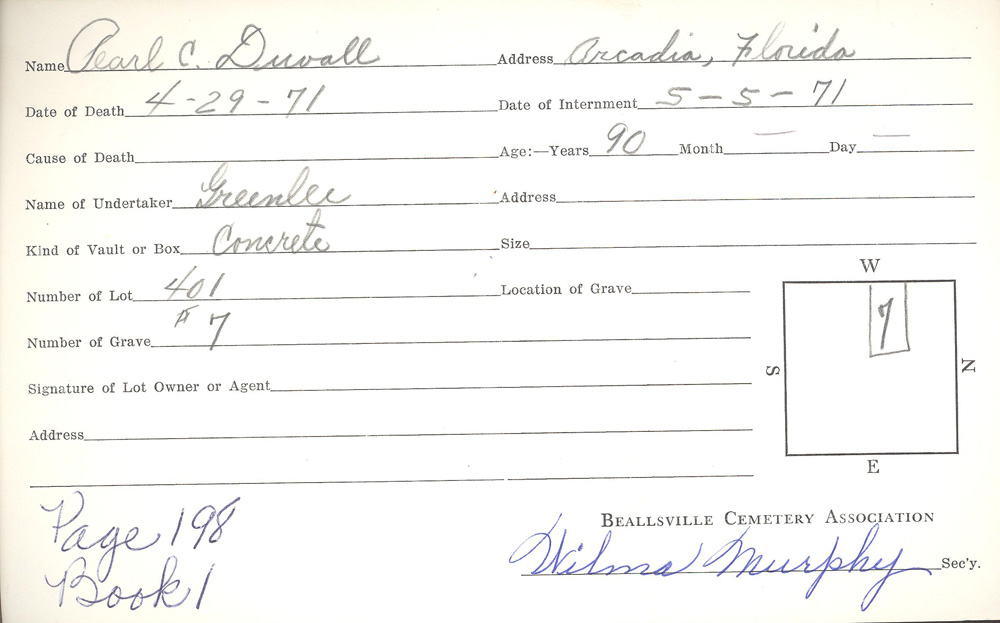 Name Pearl C. Duvall Address Arcadia, Florida
Date of Death 4-29-71 Date of Internment 5-5-71
Cause of Death Age:—Years 90 Month — Day —
Name of Undertaker Greenlee Address
Kind of Vault or Box Concrete Size
Number of Lot 401 Location of Grave
Number of Grave # 7
Signature of Lot Owner or Agent
Address
W
7
S N
E
Page 198
Book 1
BEALLSVILLE CEMETERY ASSOCIATION
Wilma Murphy Sec'y.